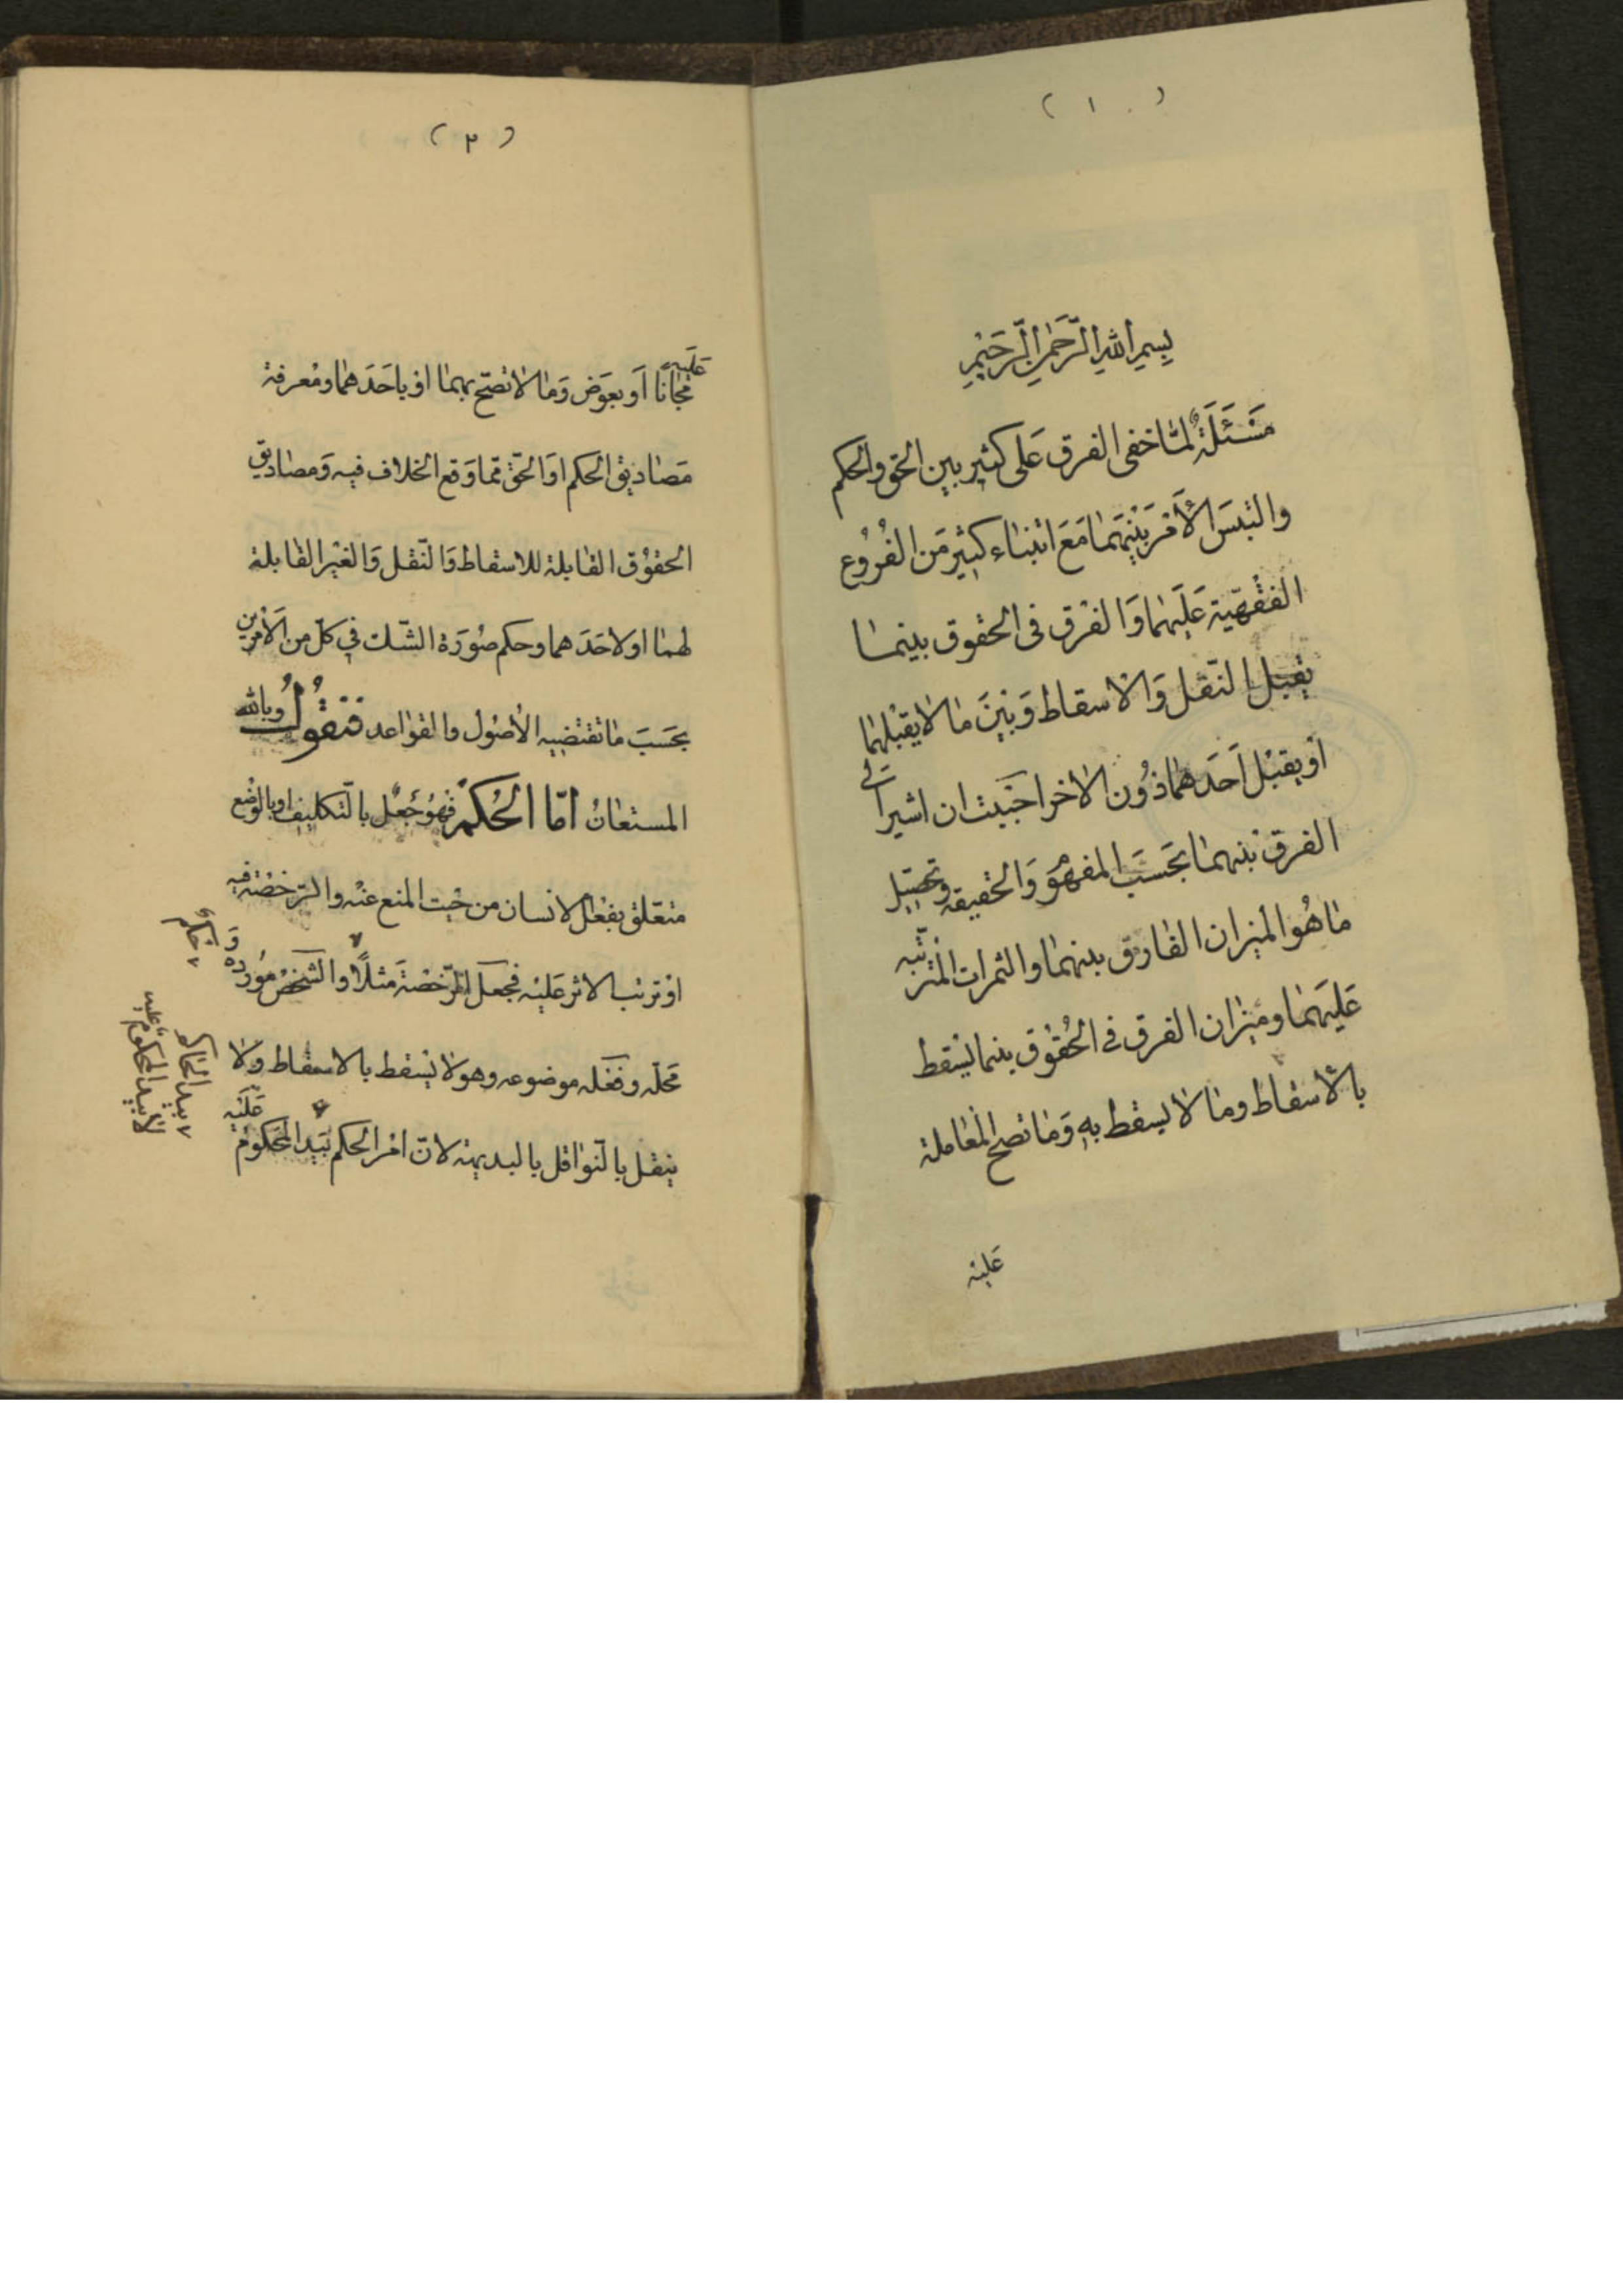 ( ١ )
بِسْمِ اللهِ الرَّحْمٰنِ الرَّحِيْمِ
مَسْئَلَةٌ لمّا خفى الفرق عَلى كثير بين الحق والحكم
والتبسَ الأمر بَيْنَهمَا مَعَ ابتناء كثير مَن الفُرُوع
الفقهّية عَلَيهمَا وَالفرق فى الحقوق بينمــا
يقبل النّقل وَالاسقاط وَبينَ مَا لا يقبلهمَا
اَو يقبل اَحَدهمَا دُون الاخر احَبَبت ان اشير الى
الفرق بينهمَا بحَسَب المفهوم وَالحقيقه وتحصيل
مَا هُو الميزان الفارق بينهمَا والثمرات المترتّبه
عَليَهمَا وميزان الفرق فى الحُقوق بينما يسقط
بالأسقاط ومَا لا يسقط بهِ وَمَا تصح المعَاملة
عَليْه
( ٢ )
عَلَيه
مجّانًا اَو بعوَض وَمَا لا تصحّ بهمَا او باحَدَهمَا ومعرفة
مَصَاديق الحكم اوَ الحقّ ممّا وَقع الخلاف فيه وَمصَاديق
الحقوُق القَابلة للاسقاط وَالنّقل وَالغيْر القَابلة
لهمَا او لاحَدَهمَا وحكم صُورَة الشّك في كلّ من الأمرين
بحَسَبَ مَا تقتضيه الأصُول والقوَاعد فنَقوُلُ وبالله
المستعَانُ امّا الحُكمْ فهُوُ جَعْل بالتكليف او بالوَضع
متعّلق بفعْل الانسان من حَيث المنع عنْه والرّخصَة فيه
اوْ ترتب الاثر عَليْه فجَعل الرّخصَة مَثلًا والشخصُ مَوُرده
وَ
حكم
محَلّه وفعَله موضوعه وهو لا يسقط بالاسقاط ولا
ينقل بالنّوَاقل بالبديهة لانّ امْر الحكم بَيَد المحَكوُم
عَلَيْه
بيد الحَاكم
لا بيد المحكوم عليه